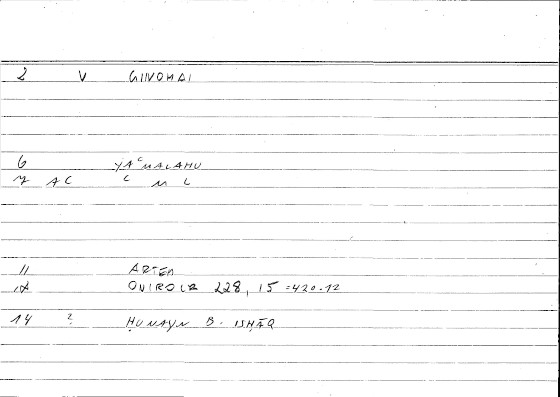 2 V GIVOMAI
6 YAʿMALAHU
7 AC ʿ M L
11 ARTEM
12 QUIROLR 228, 15 =420.12
14 ? ḤUNAYN B. ISḤĀQ